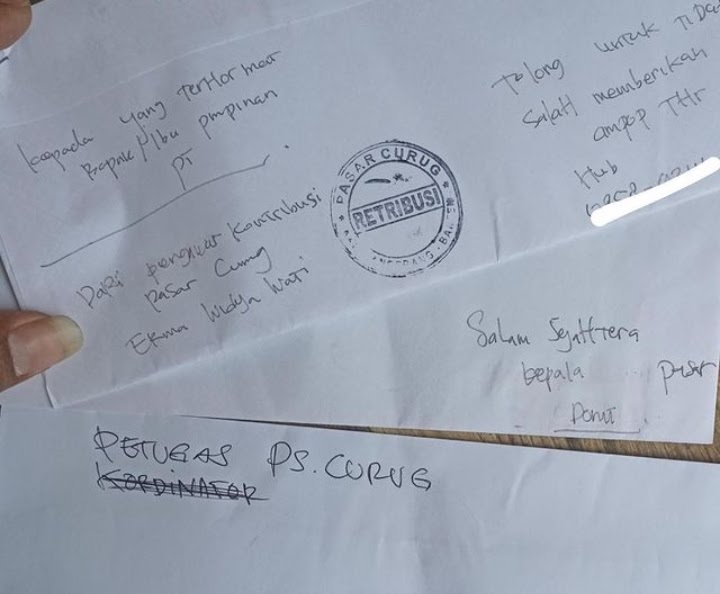 kepada yang terHormat
Bapak/Ibu pmpinan
PT
Dari pengwat kontribusi
pasar Curug
Erma Widya Wati
PASAR CURUG
RETRIBUSI
Tolong untuk TiDa
SalaH memberikan
ampop THr
Hub
Salam SejaHtera
kepala pasar
Doni
PETUGAS PS. CURUG
KORDINATOR